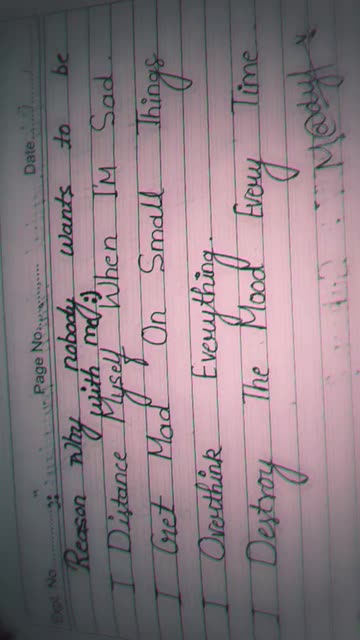 Expt. No.
Date
Page No.
Reason why nobody wants to be
with me;)
I Distance Myself When I'M Sad.
I Get Mad On Small Things
I Overthink Everything.
I Destroy The Mood Every Time.